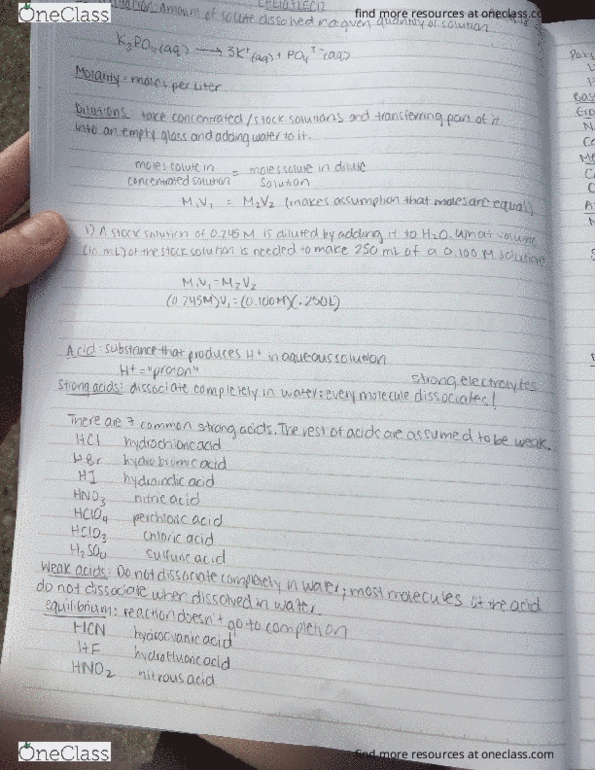 OneClass
find more resources at oneclass.com
amount of solute dissolved in a given quantity of solution
K3PO4(aq) → 3K+(aq) + PO4 3-(aq)
Molarity = moles per Liter
Dilutions: take concentrated/stock solutions and transferring part of it
into an empty glass and adding water to it.
moles solute in = moles solute in dilute
concentrated solution solution
M1V1 = M2V2 (makes assumption that moles are equal)
1) A stock solution of 0.745 M is diluted by adding it to H2O. What volume
(in mL) of the stock solution is needed to make 250 mL of a 0.100 M solution
M1V1=M2V2
(0.745M)V1=(0.100M)(.250L)
Acid: substance that produces H+ in aqueous solution
H+ = "proton"
strong electrolytes
Strong acids: dissociate completely in water: every molecule dissociates!
There are 7 common strong acids. The rest of acids are assumed to be weak.
HCl hydrochloric acid
HBr hydrobromic acid
HI hydroiodic acid
HNO3 nitric acid
HClO4 perchloric acid
HClO3 chloric acid
H2SO4 sulfuric acid
Weak acids: Do not dissociate completely in water; most molecules of the acid
do not dissociate when dissolved in water.
Equilibrium: reaction doesn't go to completion
HCN hydrocyanic acid
HF hydrofluoric acid
HNO2 nitrous acid
OneClass
find more resources at oneclass.com